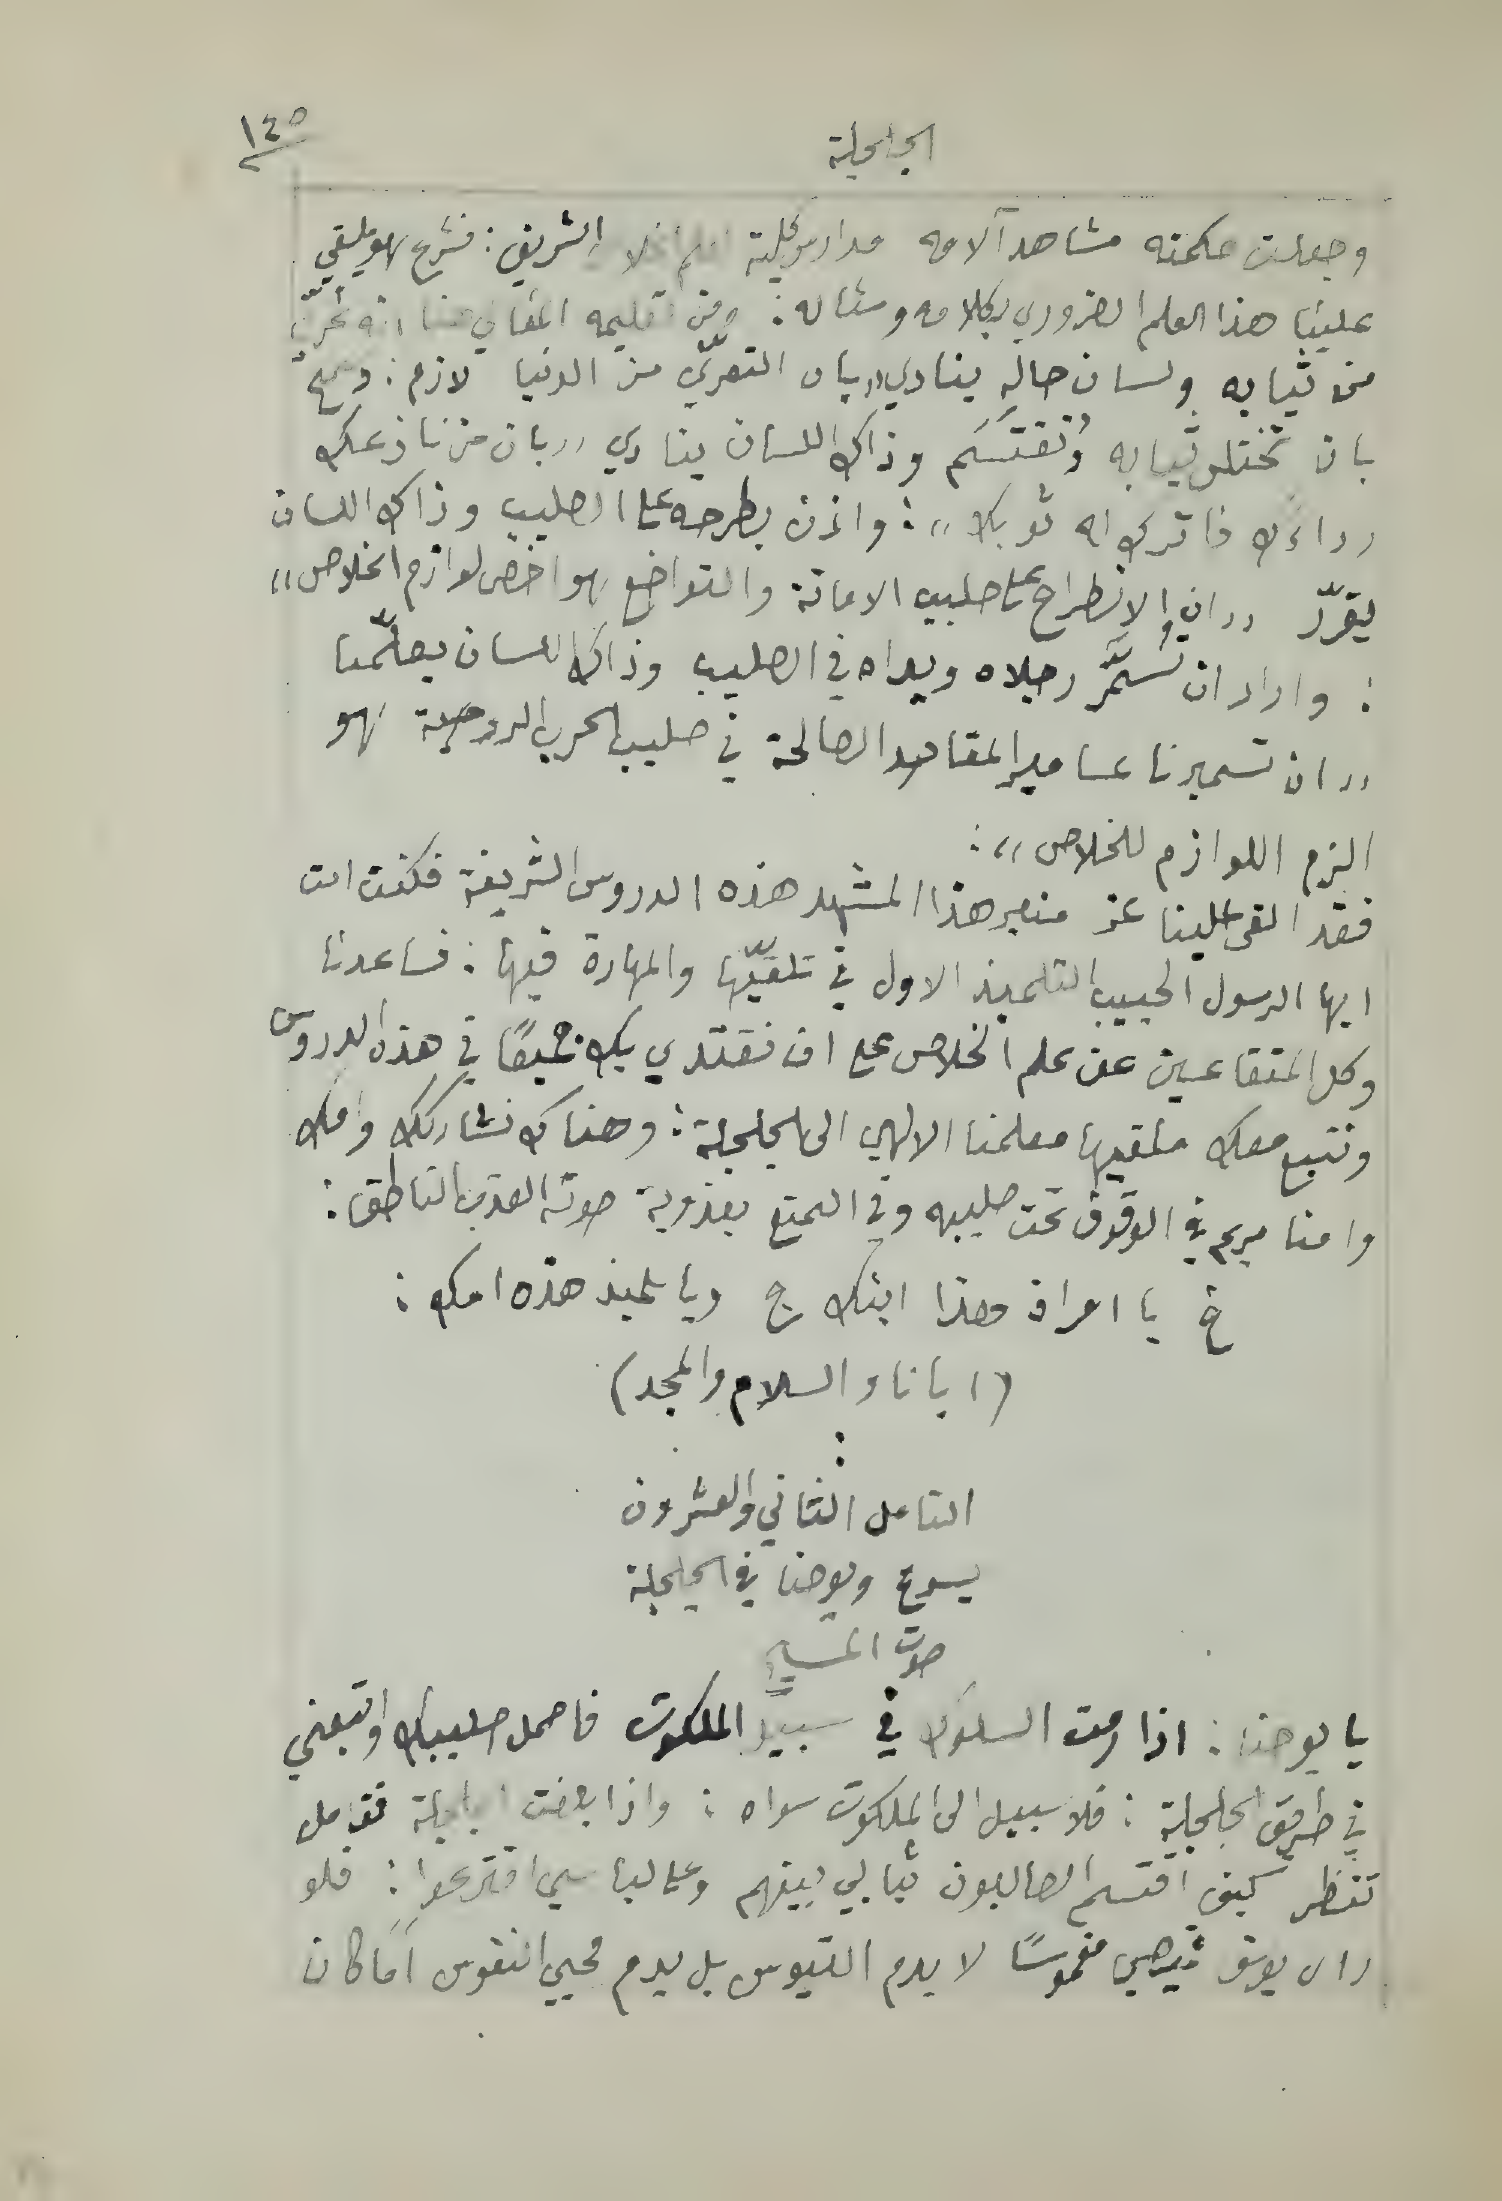 الجلجلة
١٤٥
وجعلت حكمته مشاهد آلامه مدارس كلية الشريف : فشرع هو يلقي
علينا هذا العلم الضروري بكلامه ومثاله : ومن تعليمه انه تعرّى
من ثيابه ولسان حاله ينادي ,, بان التعرّي من الدنيا لازم : وسمح
بان تختلس ثيابه وتقتسَم وذاك اللسان ينادي ,, بان من نازعك
رداءك فاترك له ثوبك ,, : واذن بطرحه على الصليب وذاك اللسان
يقرّر ,, ان الانطراح على صليب الاماتة والتواضع هو اخص لوازم الخلاص ,,
: واراد ان تُسَمَّر رجلاه ويداه في الصليب وذاك اللسان يعلّمنا
,, ان تسميرنا بمسامير المقاصد الصالحة في صليب الحرب الروحية هو
الزم اللوازم للخلاص ,, :
فقد القى علينا من منبر هذا المشهد هذه الدروس الشريفة فكنت انت
ايها الرسول الحبيب التلميذ الاول في تلقيّها والمهارة فيها : فساعدنا
وكل المتقاعسين عن علم الخلاص على ان نقتدي بك جميعًا في هذه الدروس
ونتبع معك ملقيها معلمنا الالهي الى الجلجلة : وهناك نشاركك وامك
وامنا مريم في الوقوف تحت صليبه وفي التمتع بعذوبة صوته العذب الناطق :
خ يا امراة هوذا ابنك ج ويا تلميذ هذه امك :
( ابانا والسلام والمجد )
:
التامل الثاني والعشرون
يسوع ويوحنا في الجلجلة
صوت المسيح
يا يوحنا : اذا رمت السلوك في سبيل الملكوت فاحمل صليبك واتبعني
في طريق الجلجلة : فلا سبيل الى الملكوت سواه : واذا بلغت الجلجلة فتامل
تنظر كيف اقتسم الصالبون ثيابي بينهم وعلى لباسي اقترعوا : فلو
راى يوسف قميصي مغموسًا لا بدم التيوس بل بدم محيي النفوس اَمَا كان